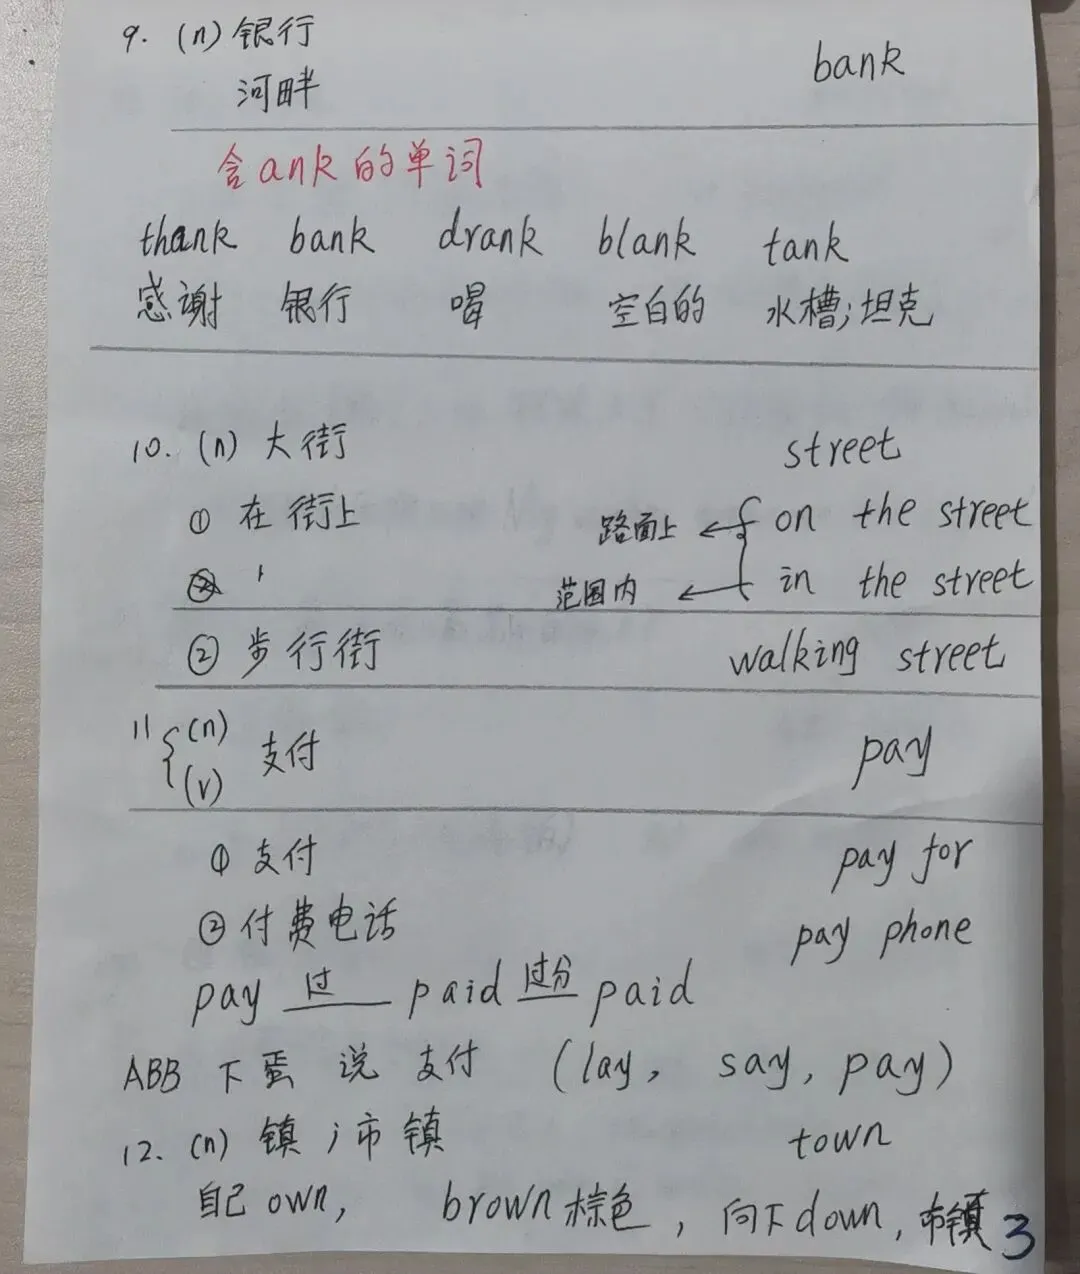 9. (n) 银行 bank
河畔
含ank的单词
thank bank drank blank tank
感谢 银行 喝 空白的 水槽;坦克
10. (n) 大街 street
① 在街上 路面上 ← on the street
范围内 ← in the street
② 步行街 walking street
11 {(n) (v) 支付 pay
① 支付 pay for
② 付费电话 pay phone
pay 过 paid 过分 paid
ABB 下蛋 说 支付 (lay, say, pay)
12. (n) 镇;市镇 town
自己own, brown棕色, 向下down, 市镇
3